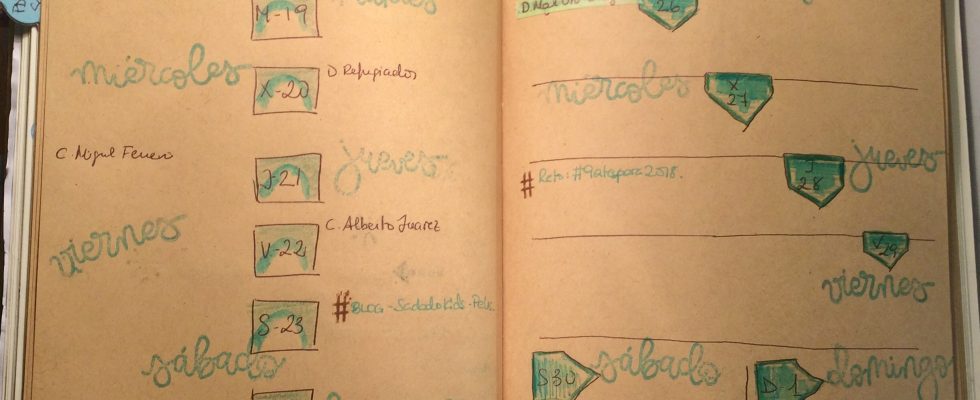 M-19
miércoles
X-20
D. Refugiados
C. Miguel Ferrero
J-21
jueves
viernes
V-22
C. Alberto Juarez
S-23
#BLOG - Sadadokids - Pelu.
sábado
26
miércoles
X
27
# Reto: #9atapara2018.
J
28
jueves
V29
viernes
S30
sábado
D-1
domingo